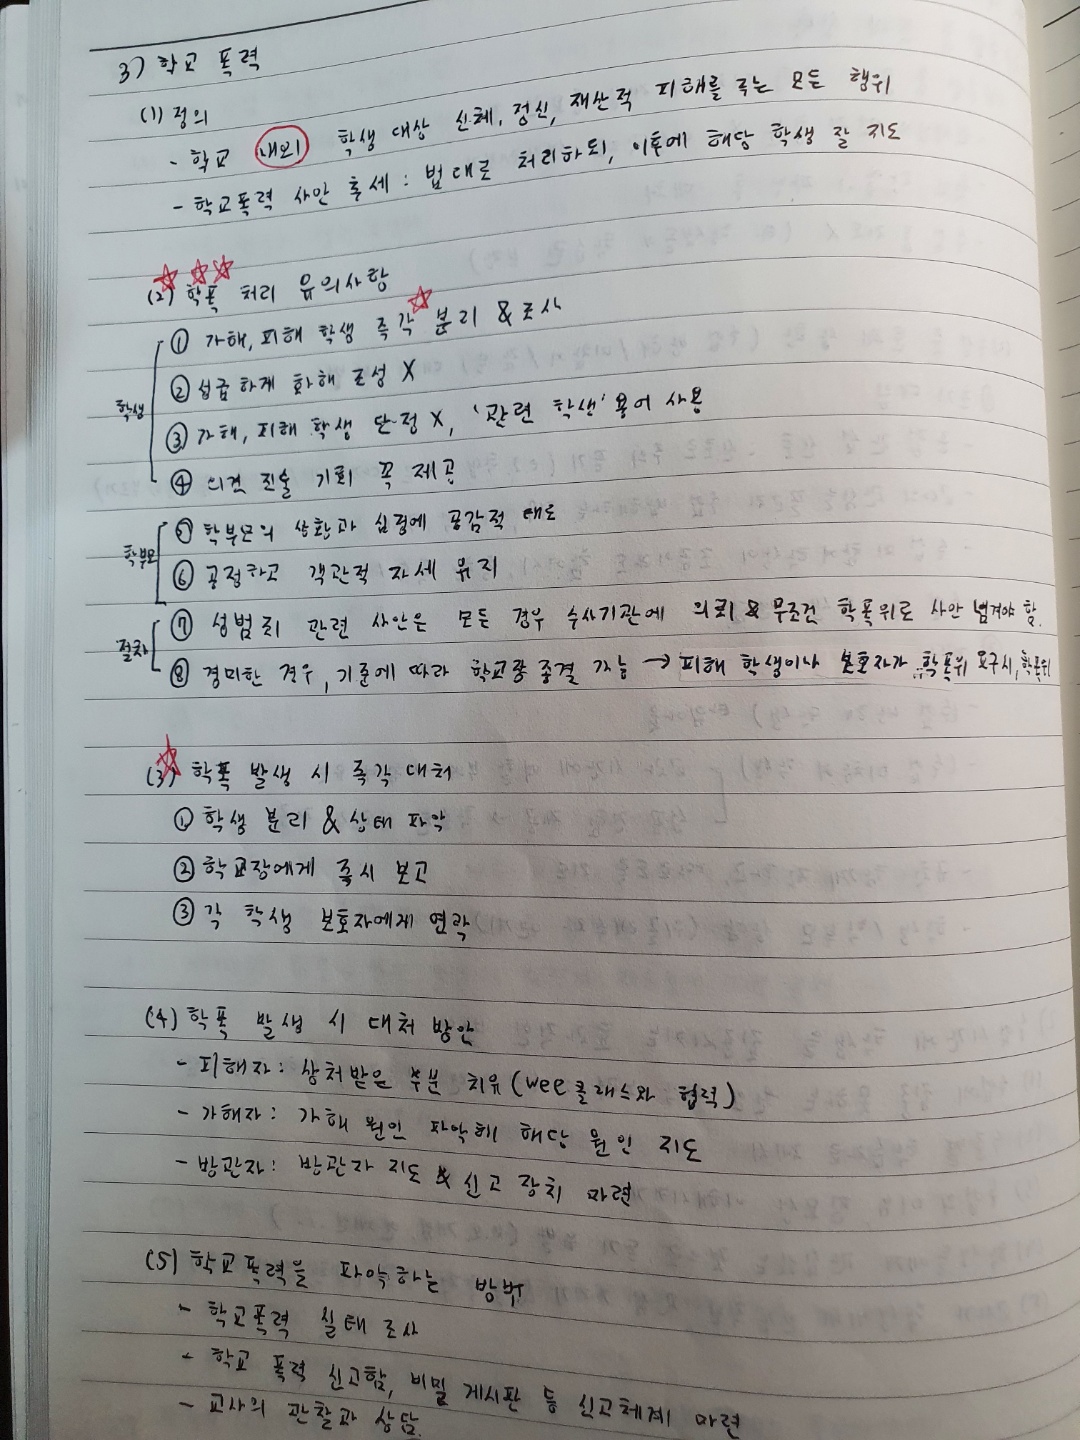 3) 학교 폭력
(1) 정의
- 학교 내외 학생 대상 신체, 정신, 재산적 피해를 주는 모든 행위
- 학교폭력 사안 후세 : 법대로 처리하되, 이후에 해당 학생 잘 지도
(2) 학폭 처리 유의사항
학생
① 가해, 피해 학생 즉각 분리 & 조사
② 성급하게 화해 조성 X
③ 가해, 피해 학생 단정 X, '관련 학생' 용어 사용
④ 의견 진술 기회 꼭 제공
학부모
⑤ 학부모의 상황과 심정에 공감적 태도
⑥ 공정하고 객관적 자세 유지
절차
⑦ 성범죄 관련 사안은 모든 경우 수사기관에 의뢰 & 무조건 학폭위로 사안 넘겨야 함.
⑧ 경미한 경우, 기준에 따라 학교장 종결 가능 → 피해 학생이나 보호자가 학폭위 요구시, 학폭위
(3) 학폭 발생 시 즉각 대처
① 학생 분리 & 상태 파악
② 학교장에게 즉시 보고
③ 각 학생 보호자에게 연락
(4) 학폭 발생 시 대처 방안
- 피해자 : 상처받은 부분 치유 (wee클래스와 협력)
- 가해자 : 가해 원인 파악해 해당 원인 지도
- 방관자 : 방관자 지도 & 신고 장치 마련
(5) 학교폭력을 파악하는 방법
- 학교폭력 실태 조사
- 학교 폭력 신고함, 비밀 게시판 등 신고체계 마련
- 교사의 관찰과 상담.